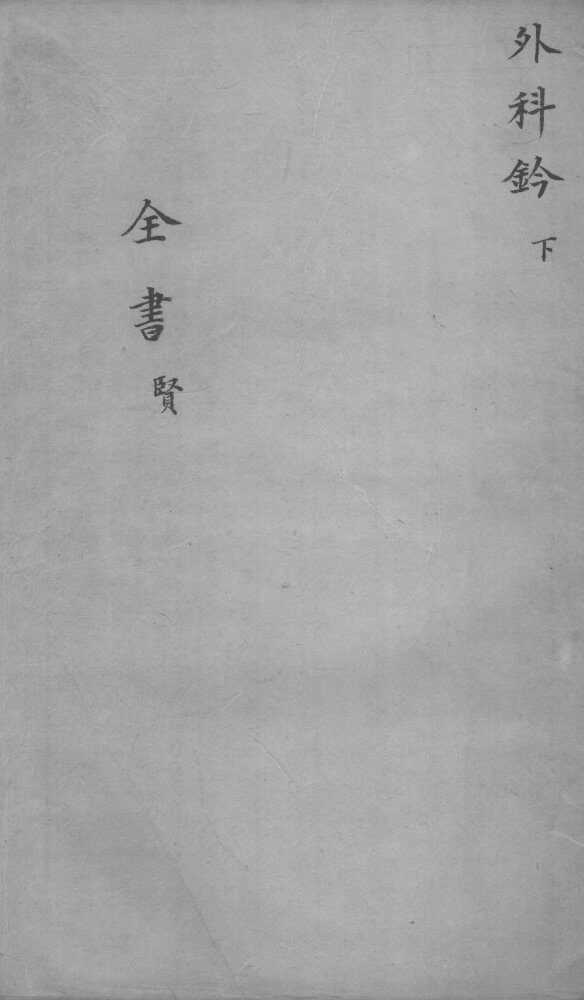 外科鈐下
全書賢